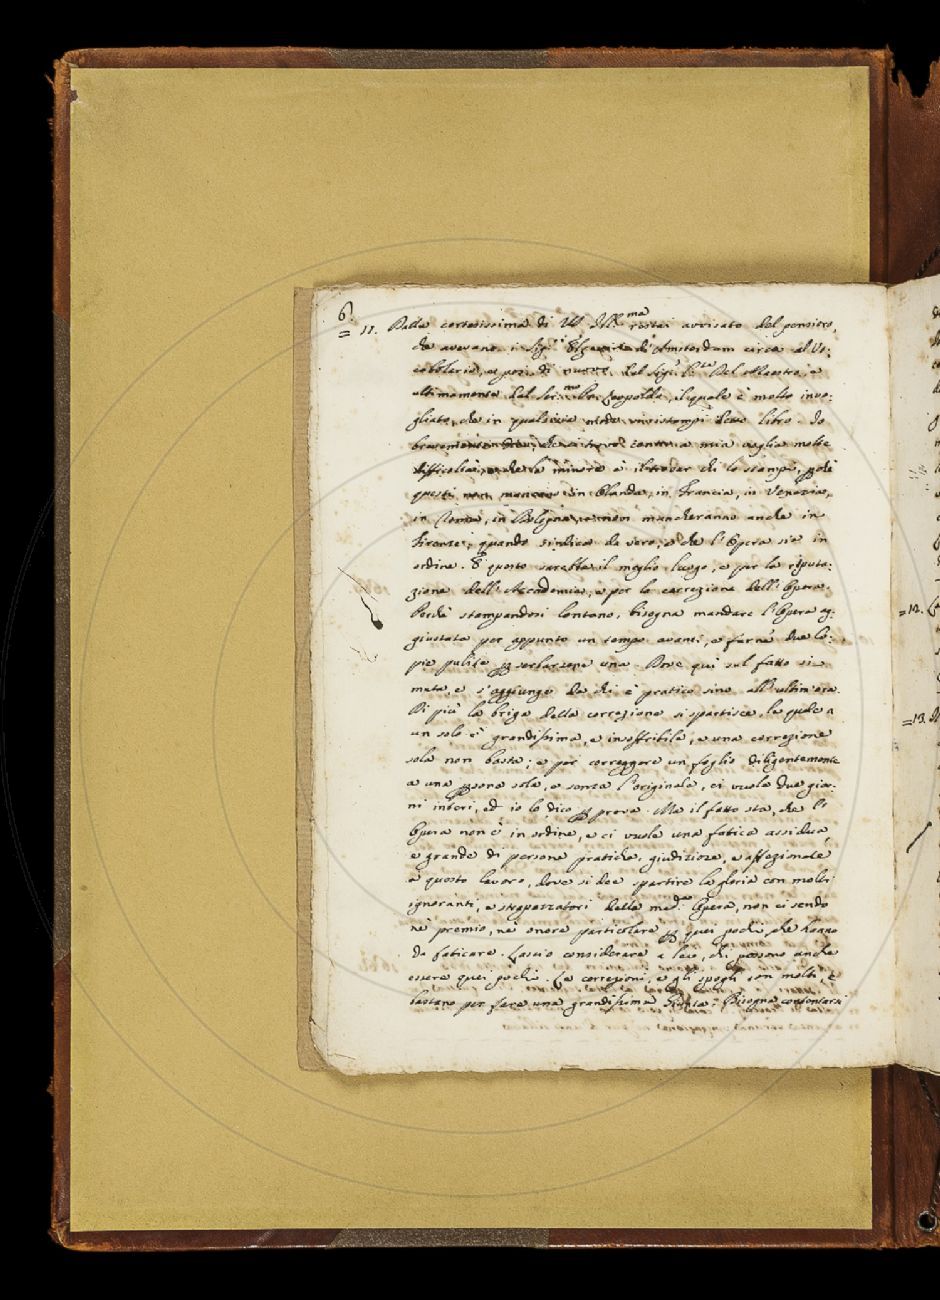 6.
= 11. Dalla cortesissima di VS Ill.ma restai avvisato del pensiero,
che avevano i Sig.ri Elzevirii di Amsterdam circa al Vo:
cabolario, e poi di nuovo dal Sig.r Del Maestro, e
ultimamente dal Ser.mo Pr. Leopoldo, il quale è molto invo:
gliato, che in qualsivia modo si ristampi detto libro. Io
brevemente dico, che ci trovo contro a mia voglia molte
difficoltà, e che la minore è il trovar chi lo stampi, poiché
questi non mancano in Olanda, in Francia, in Venezia,
in Roma, in Bologna, e non mancheranno anche in
Firenze, quando si dica da vero, e che l'Opera sia in
ordine. E questo sarebbe il meglio luogo, e per la riputa:
zione dell'Accademia, e per la correzione dell'Opera.
Perché stampandosi lontano, bisogna mandare l'Opera ag:
giustata per appunto un tempo avanti, e farne due co:
pie pulite per serbarsene una. Dove qui sul fatto si
muta, e s'aggiunge da chi è pratico sino all'ultim'ora.
Di più la briga della correzione si spartisce, la quale a
un solo è grandissima, e insoffribile, e una correzione
sola non basta; e per correggere un foglio diligentemente
a una persona sola, e senza l'originale, ci vuole due gior:
ni interi, ed io lo dico per prova. Ma il fatto sta, che l'
Opera non è in ordine, e ci vuole una fatica assidua,
e grande di persone pratiche, giudiziose, e affezionate
a questo lavoro, dove si dee spartire la gloria con molti
ignoranti, e strapazzatori della med.a Opera, non ci sendo
né premio, né onore particolare per quei pochi, che hanno
da faticare. Lascio considerare a leu, chi possono anche
essere quei pochi. Le correzioni, e gli spogli son molti, e
bastano per fare una grandissima Giunta: Bisogna confontarsi
= 12.
= 13.